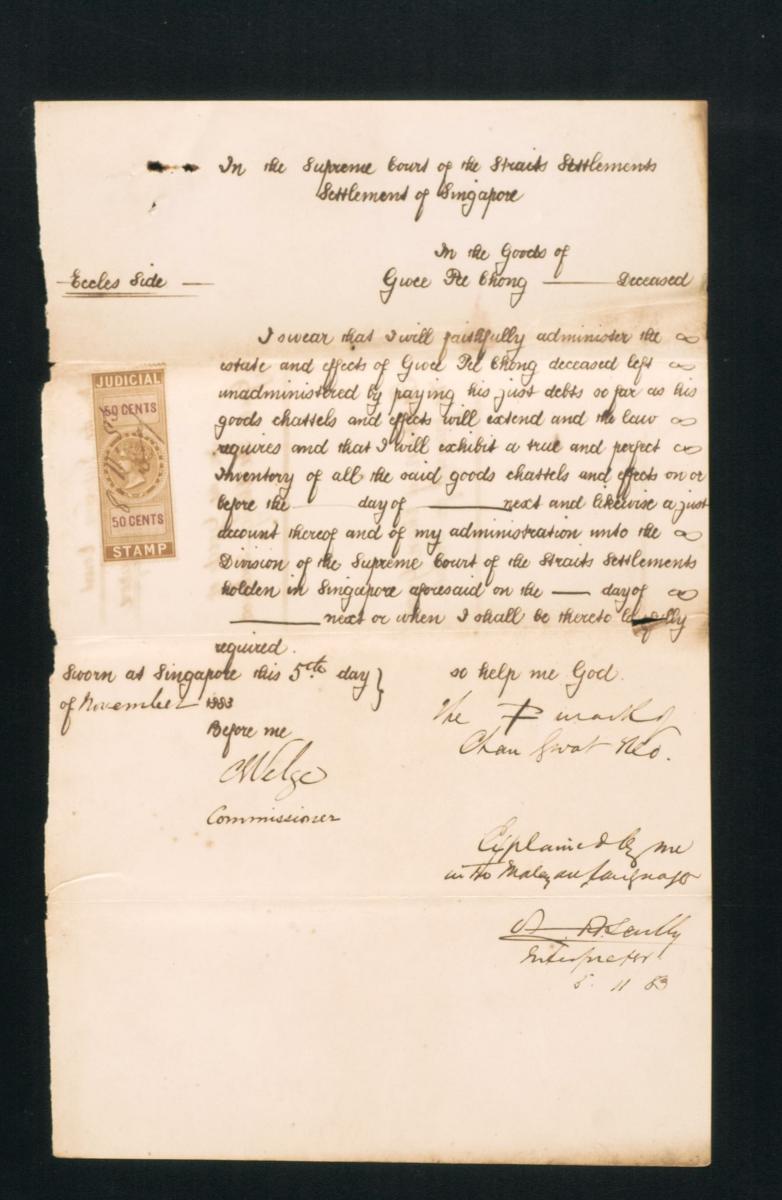 In the Supreme Court of the Straits Settlements
Settlement of Singapore
In the Goods of
Eccles Side — Gwee Pee Chong — Deceased
I swear that I will faithfully administer the
estate and effects of Gwee Pee Chong deceased left
unadministered by paying his just debts so far as his
goods chattels and effects will extend and the law
requires and that I will exhibit a true and perfect
Inventory of all the said goods chattels and effects on or
before the — day of — next and likewise a just
account thereof and of my administration unto the
Division of the Supreme Court of the Straits Settlements
holden in Singapore aforesaid on the — day of
— next or when I shall be thereto lawfully
required.
JUDICIAL
50 CENTS
50 CENTS
STAMP
Sworn at Singapore this 5th day
of November 1883
Before me
Commissioner
so help me God.
The mark of
Chan Neo.
Explained by me
in the Malayan language
Interpreter
5. 11 83